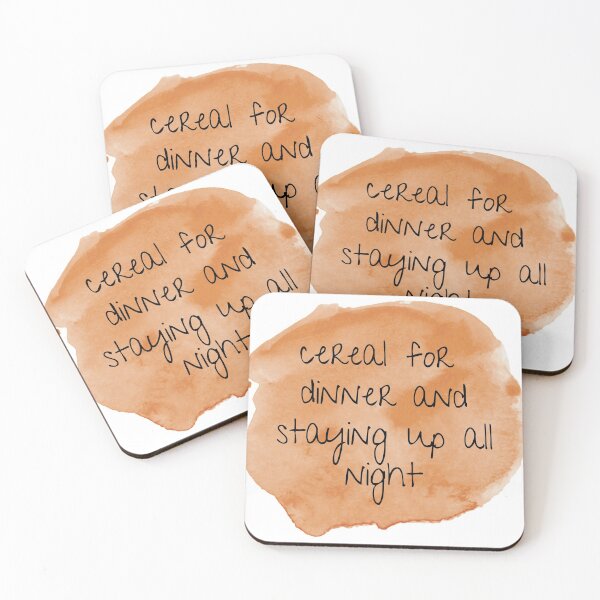 cereal for
dinner and
up
cereal for
dinner and
staying up all
night
cereal for
dinner and
staying up all
night
cereal for
dinner and
staying up all
night